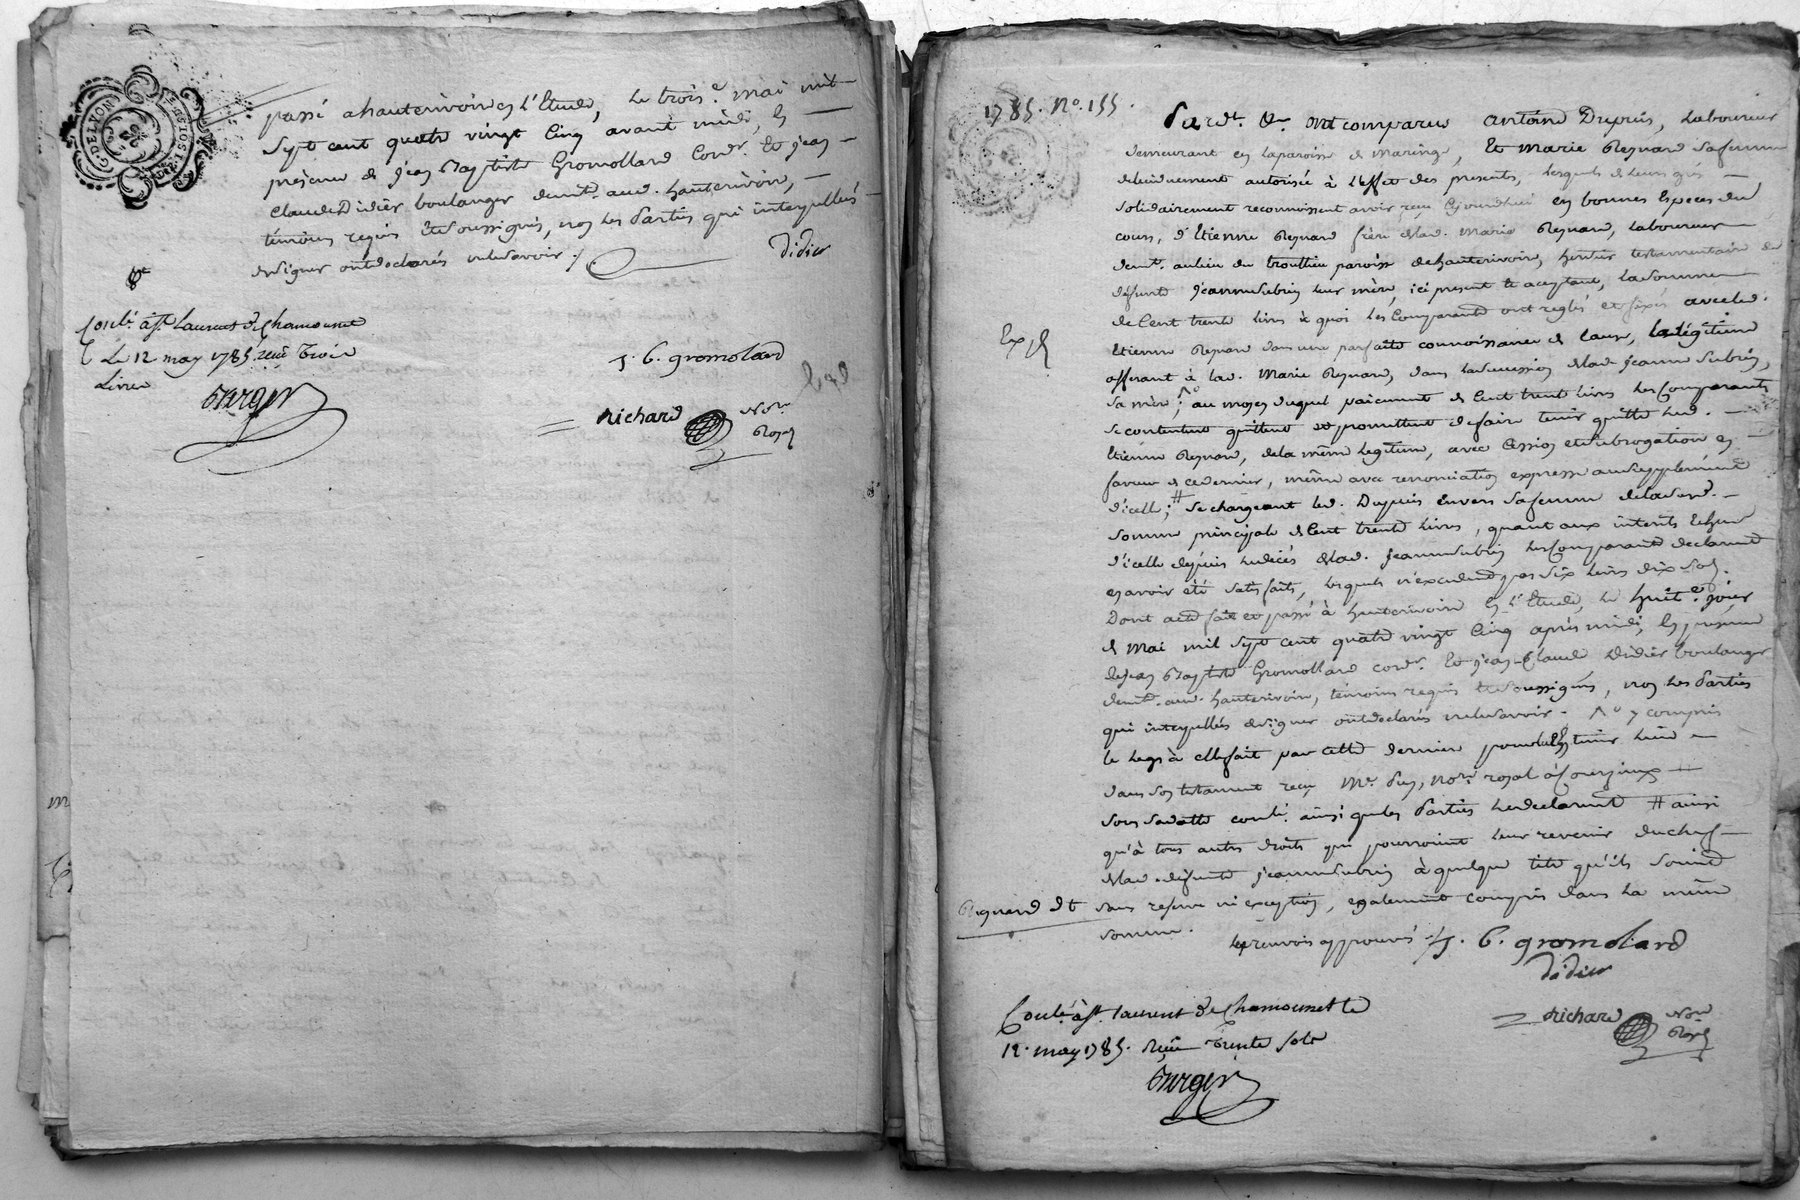 G. DE LYON
passé a hauterivoire en l'Etude, le trois.e mai mil
sept cent quatre vingt cinq avant midi, en
présence de jean Baptiste Gromollard cordr. Et jean
Claude Didier boulanger demt. aud. hauterivoire,
témoins requis Et soussignés, non les Parties qui interpellées
de signer ont declarés ne le savoir ./.
Didier
Conlé. à St. Laurent de Chamousset
Le 12 may 1785. reçu Trois
Livres
J. B. gromolard
richard Nore.
Royal
1785. No. 155.
Pardt. &a. ont comparus antoine Dupuis, Laboureur
demeurant en la paroisse de Maringe, Et Marie Reynard sa femme
de lui duement autorisée à l'effet des presentes, lesquels de leurs grés
solidairement reconnoissent avoir reçu Ejourdhui en bonnes Especes du
cours, d'Etienne Reynard frère de lad. Marie Reynard, laboureur
demt. au lieu du trouttieu paroisse de hauterivoire, héritier testamentaire de
défunte jeanne Subrin leur mère, ici present et aceptant, la somme
de Cent trente livres à quoi les Comparants ont reglés et fixés avec led.
Exp.
Etienne Reynard dans une parfaite connoissance de cause, la légitime
afferant à lad. Marie Reynard, dans la succession de lad. jeanne Subrin,
sa mère; au moyen duquel paiement de cent trente livres les Comparants
se contentent quittent et promettent de faire tenir quitte led.
Etienne Reynard, de la même légitime, avec Cession et subrogation en
faveur de ce dernier, même avec renonciation expresse au supplément
d'icelle; # se chargeant led. Dupuis envers sa femme de la susd.
somme principale de Cent trente livres, quant aux interêts Echus
d'icelle depuis le décés de lad. jeanne Subrin les Comparants declarent
en avoir été satisfaits, lesquels n'excedent pas six livres dix sols.
Dont acte fait et passé à hauterivoire en l'Etude, le huit.e jour
de Mai mil sept cent quatre vingt cinq après midi, En presence
de jean Baptiste Gromollard cordr. Et jean Claude Didier boulanger
demt. aud. hauterivoire, témoins requis Et soussignés, non les Parties
qui interpellés de signer ont declarés ne le savoir. y compris
le legs à elle fait par cette derniere pour lui En tenir lieu
dans son testament reçu Me. Puy, nore. royal à Courzieux
sous sa datte conlé. ainsi que les Parties le declarent # ainsi
qu'à tous autres droits qui pourroient leur revenir du chef
de lad. défunte jeanne Subrin à quelque titre qu'ils soient
Reynard dt
sans reserve ni exception, egalement compris dans la même
somme.
les renvois approuvés ./. J. B. gromolard
Didier
richard Nore.
Royal
Conlé. à St. laurent de Chamousset le
12. may 1785. Reçu Trente sols